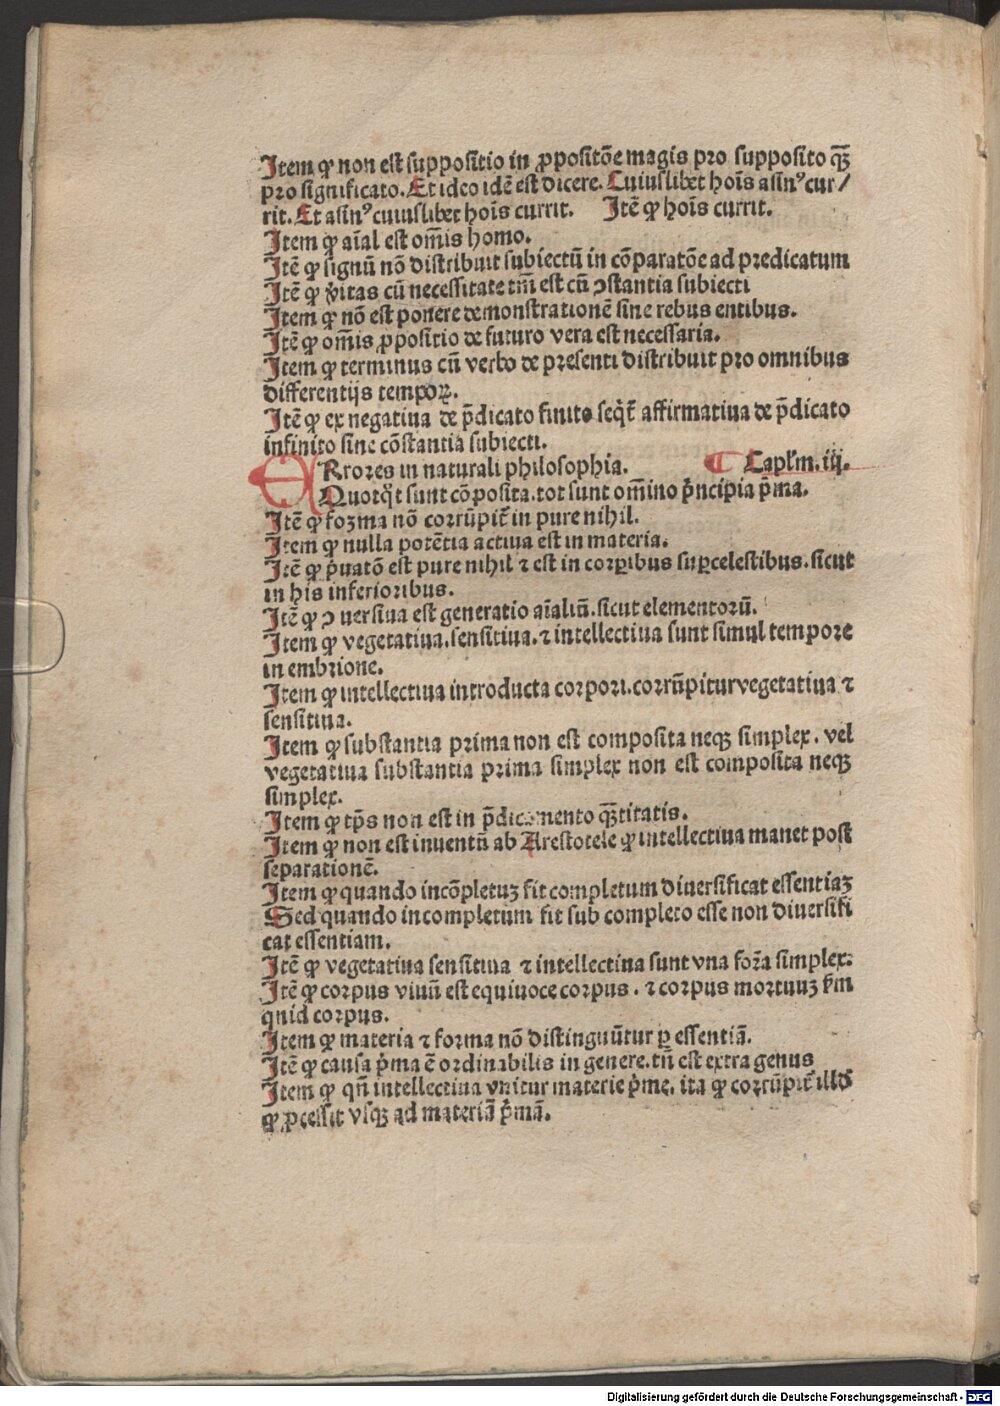 Item ꝙ non est suppositio in ꝓpositõe magis pro supposito qᷓꝫ
pro significato. Et ideo idẽ est dicere. Cuiuslibet hoĩs asinꝰ cur/
rit. Et asinꝰ cuiuslibet hoĩs currit. Itẽ ꝙ hoĩs currit.
Item ꝙ aĩal est om̃is homo.
Itẽ ꝙ signũ nõ distribuit subiectũ in cõparatõe ad predicatum
Itẽ ꝙ v̾itas cũ necessitate tm̃ est cũ ꝯstantia subiecti
Item ꝙ nõ est ponere demonstrationẽ sine rebus entibus.
Itẽ ꝙ om̃is ꝓpositio de futuro vera est necessaria.
Item ꝙ terminus cũ verbo de presenti distribuit pro omnibus
differentijs tempoꝝ.
Itẽ ꝙ ex negatiua de p̃dicato finito seqͥt̃ affirmatiua de p̃dicato
infinito sine cõstantia subiecti.
ERrores in naturali philosophia. Capl'm. iij.
Quotqͦt sunt cõposita. tot sunt om̃ino pͥncipia pͥma.
Itẽ ꝙ forma nõ corrũpit̃ in pure nihil.
Item ꝙ nulla potẽtia actiua est in materia.
Itẽ ꝙ pͥuatõ est pure nihil ⁊ est in corꝑibus suꝑcelestibus. sicut
in his inferioribus.
Itẽ ꝙ ꝯuersiua est generatio aĩaliũ. sicut elementorũ.
Item ꝙ vegetatiua. sensitiua. ⁊ intellectiua sunt simul tempore
in embrione.
Item ꝙ intellectiua introducta corpori. corrũpitur vegetatiua ⁊
sensitiua.
Item ꝙ substantia prima non est composita neqꝫ simplex. vel
vegetatiua substantia prima simplex non est composita neqꝫ
simplex.
Item ꝙ tp̃s non est in p̃dicamento qᷓꝫtitatis.
Item ꝙ non est inuentũ ab Arestotele ꝙ intellectiua manet post
separationẽ.
Item ꝙ quando incõpletuꝫ fit completum diuersificat essentiaꝫ
Sed quando incompletum fit sub completo esse non diuersifi
cat essentiam.
Itẽ ꝙ vegetatiua sensitiua ⁊ intellectiua sunt vna for̃a simplex.
Itẽ ꝙ corpus viuũ est equiuoce corpus. ⁊ corpus mortuuꝫ s'm
quid corpus.
Item ꝙ materia ⁊ forma nõ distinguũtur ꝑ essentiã.
Itẽ ꝙ causa pͥma ẽ ordinabilis in genere. tñ est extra genus
Item ꝙ qñ intellectiua vnitur materie pͥme. ita ꝙ corrũpit̃ illd̾
ꝙ p̱cessit vsqꝫ ad materiã pͥmã.
Digitalisierung gefördert durch die Deutsche Forschungsgemeinschaft - DFG